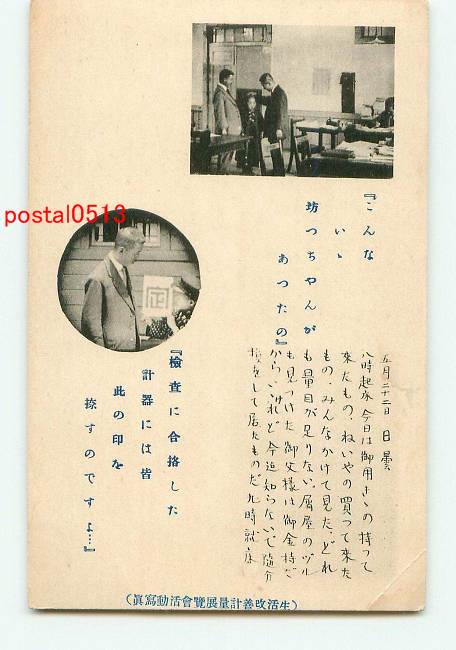 postal0513
『こんな
いゝ
坊つちやんが
あつたの』
五月二十二日 日 曇
八時起床今日は御用きゝの持つて
来たもの、ねいやの買つて来た
もの、みんなかけて見た、どれ
も量目が足りない、屑屋のヅル
も見つけた御父様は御金持だ
からいゝけれど今迄知らないで随分
損をして居たものだ九時就床
『檢査に合格した
計器には皆
此の印を
捺すのですよ…』
定
(生活改善計量展覽會活動寫眞)